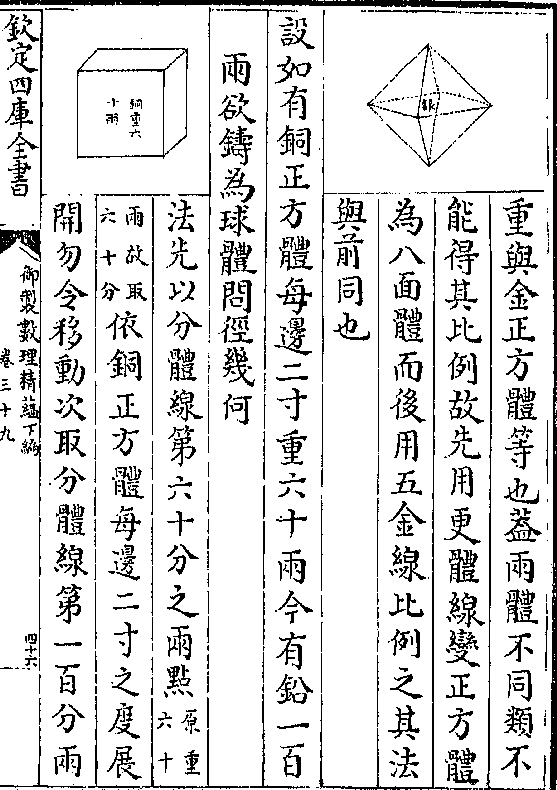 重與金正方體等也葢兩體不同類不
能得其比例故先用更體線變正方體
為八面體而後用五金線比例之其法
與前同也
銀
設如有銅正方體每邊二寸重六十兩今有鉛一百
兩欲鑄為球體問徑幾何
銅重六
十兩
法先以分體線第六十分之兩㸃原重六十
兩故取六十分依銅正方體每邊二寸之度展
開勿令移動次取分體線第一百分兩
欽定四庫全書
御製數理精蘊下編
卷三十九
四十六